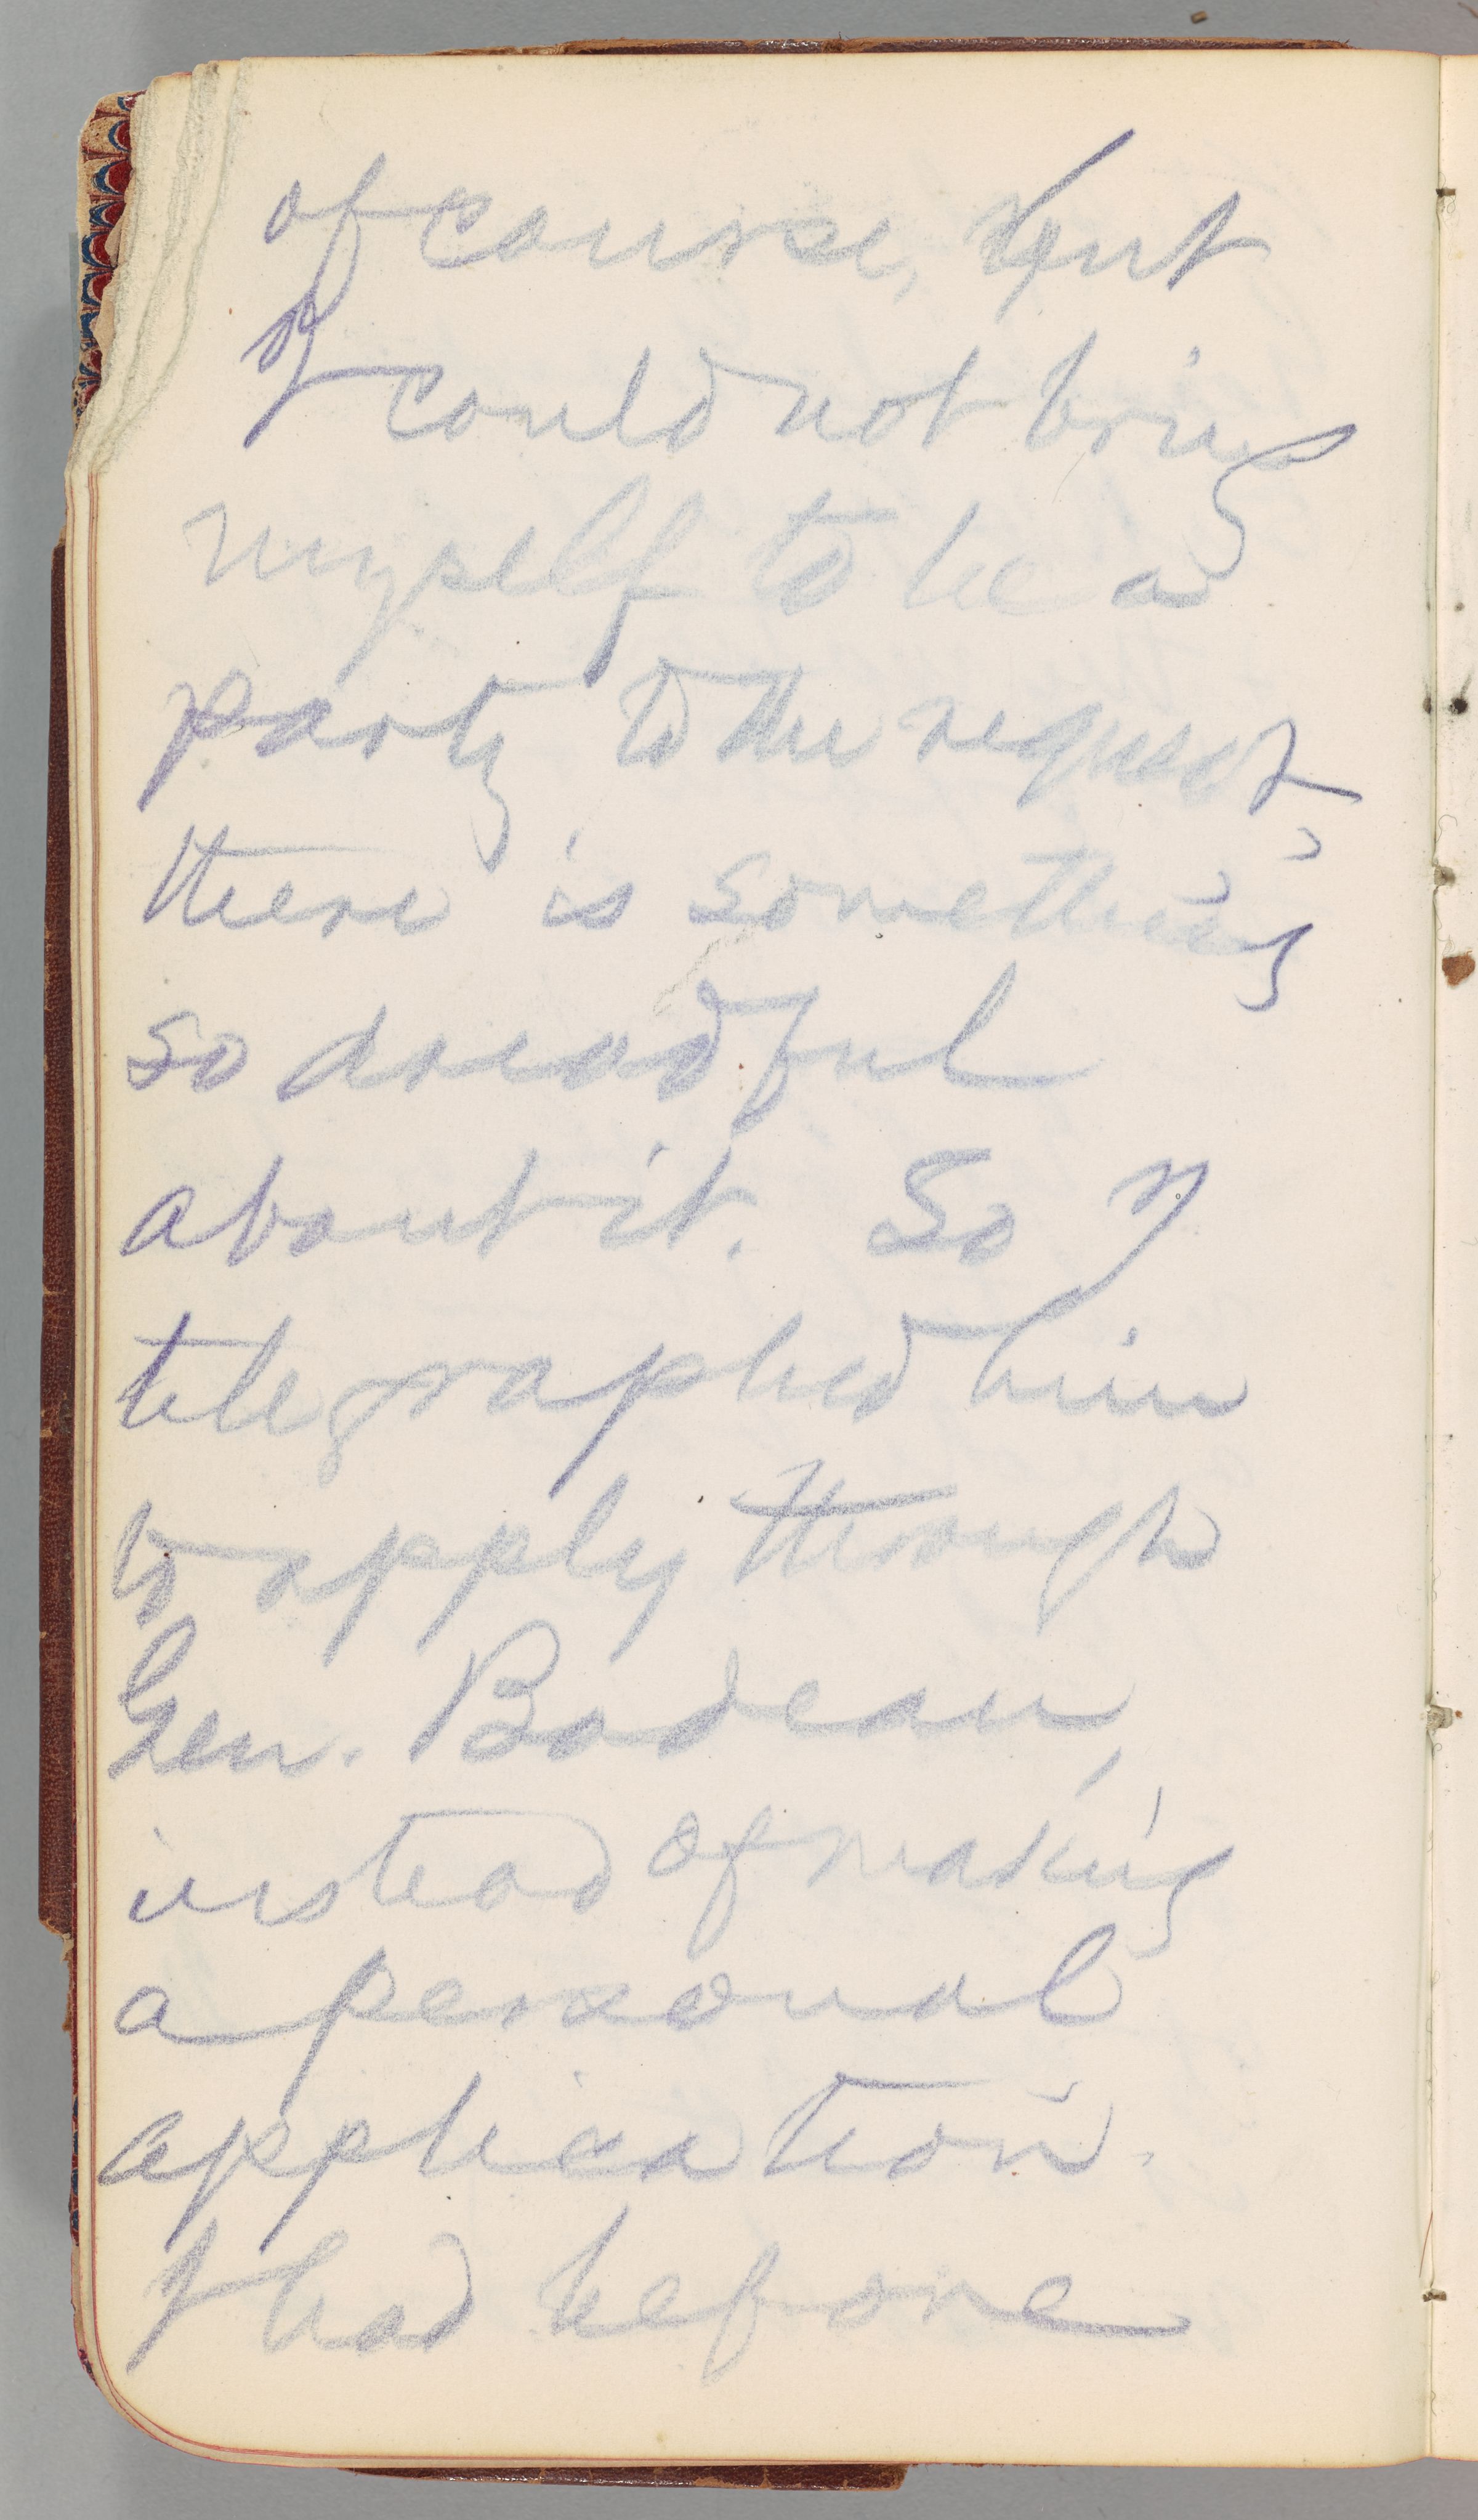 of course, but
I could not bring
myself to be a
party to the request,
there is something
so dreadful
about it. So I
telegraphed him
to apply through
Gen. Badeau,
instead of making
a personal
application.
I had before